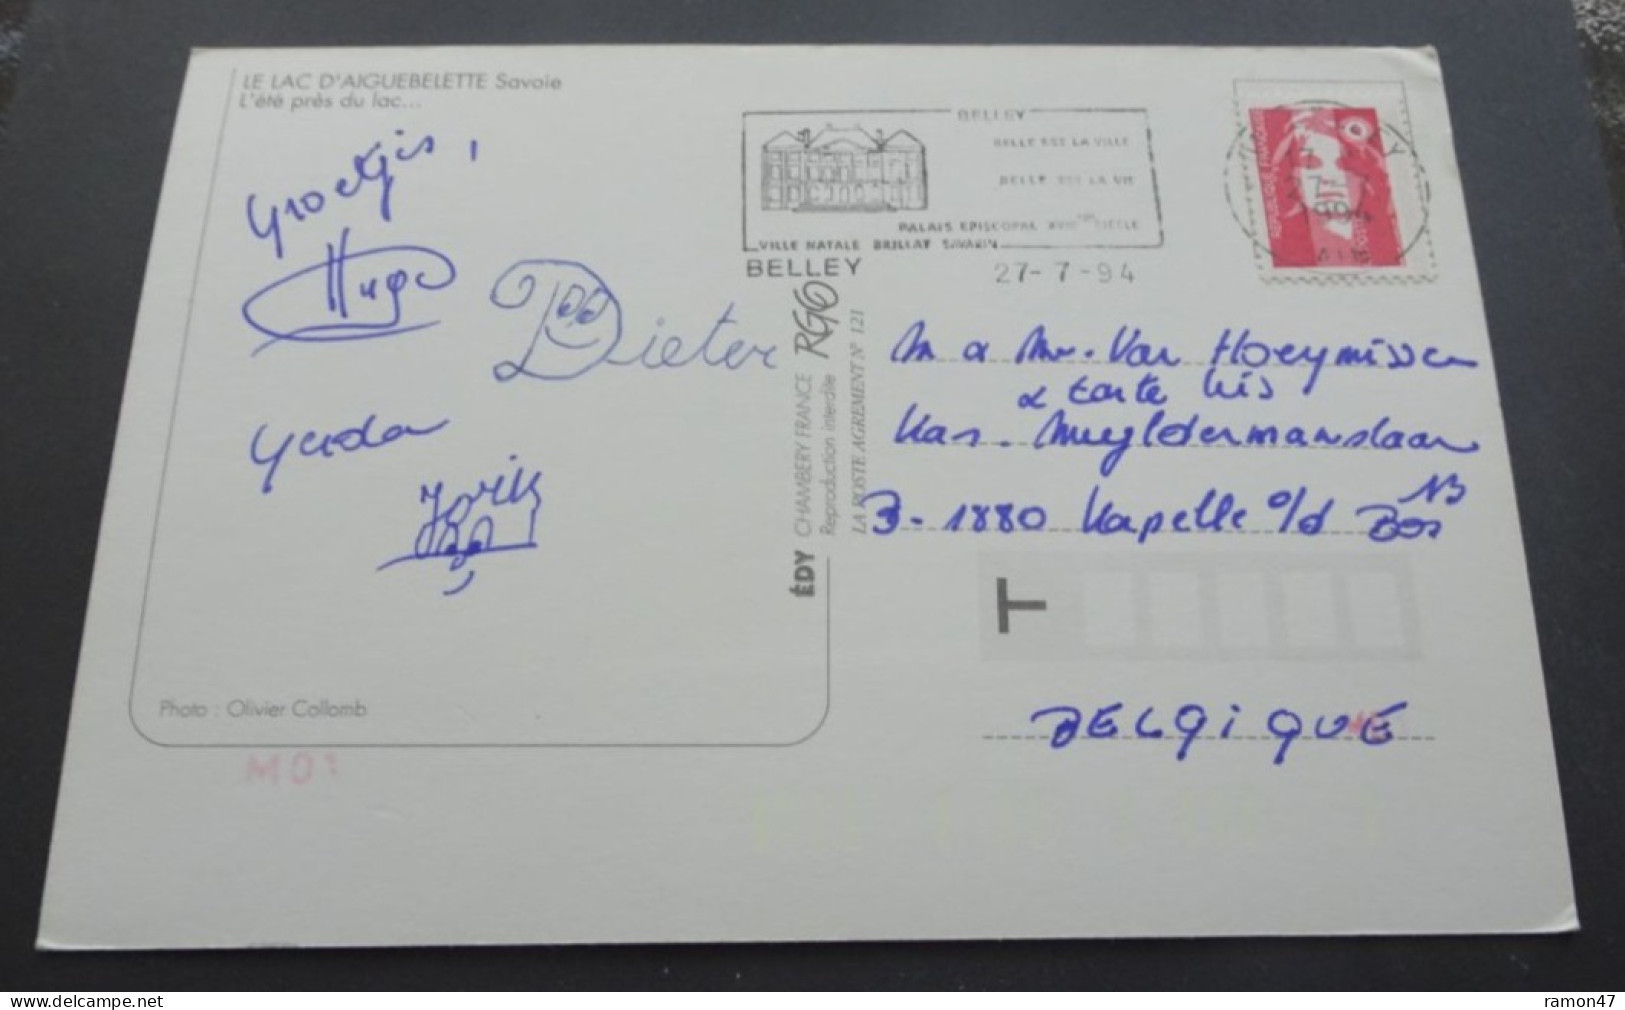 LE LAC D'AIGUEBELETTE Savoie
L'été près du lac...
Groetjes,
Hugo
Dieter
Gerda
Jorik
Photo : Olivier Collomb
M01
ÉDY CHAMBERY FRANCE RGO
Reproduction interdite
LA POSTE AGREMENT N° 121
BELLEY
BELLE EST LA VILLE
BELLE EST LA VIE
PALAIS EPISCOPAL XVIII SIÈCLE
VILLE NATALE BRILLAT SAVARIN
BELLEY
27-7-94
REPUBLIQUE FRANÇAISE
1994
AIN
M & Mr. Van Hoeymissen
& tante Lis
Kas. Muyldermanslaan
13
B-1880 Kapelle o/d Bos
T
BELGIQUE
www.delcampe.net
ramon47